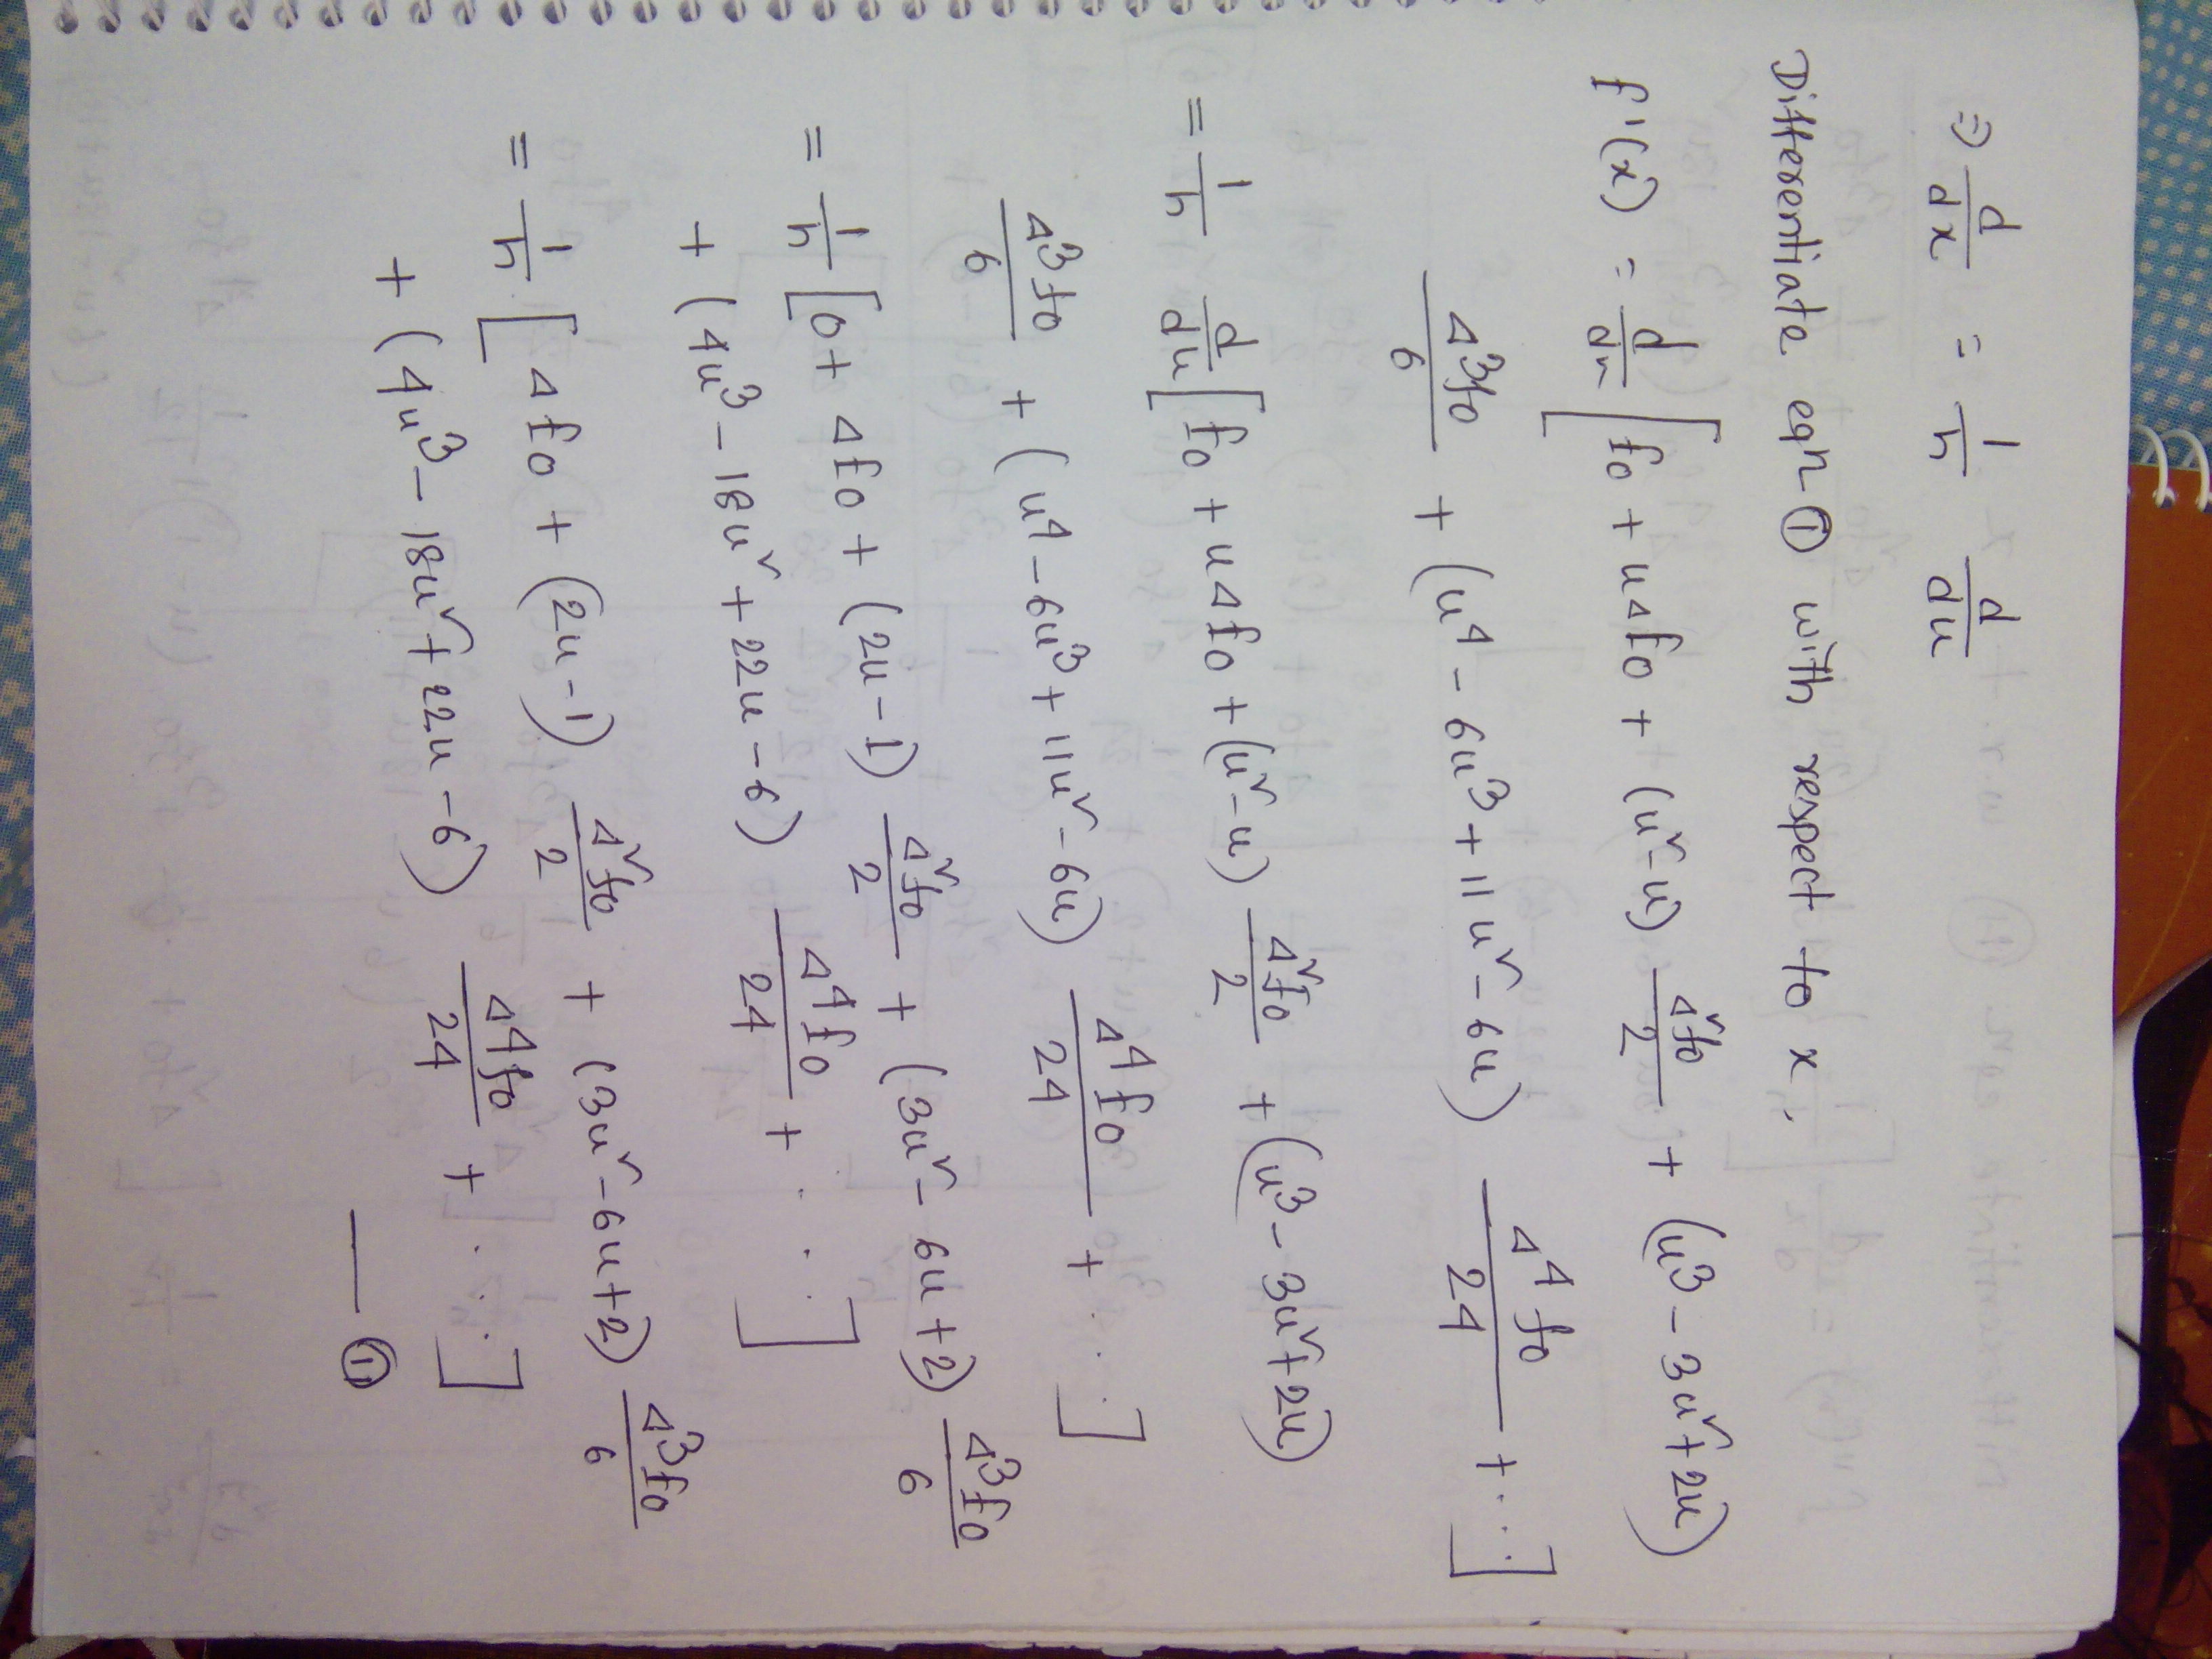 ⇒ d/dx = 1/h d/du
Differentiate eqn-① with respect to x,
f'(x) = d/dx [ f0 + uΔf0 + (u² - u) Δ²f0/2 + (u³ - 3u² + 2u)
Δ³f0/6 + (u⁴ - 6u³ + 11u² - 6u) Δ⁴f0/24 + ... ]
= 1/h d/du [ f0 + uΔf0 + (u² - u) Δ²f0/2 + (u³ - 3u² + 2u)
Δ³f0/6 + (u⁴ - 6u³ + 11u² - 6u) Δ⁴f0/24 + ... ]
= 1/h [ 0 + Δf0 + (2u - 1) Δ²f0/2 + (3u² - 6u + 2) Δ³f0/6
+ (4u³ - 18u² + 22u - 6) Δ⁴f0/24 + ... ]
= 1/h [ Δf0 + (2u - 1) Δ²f0/2 + (3u² - 6u + 2) Δ³f0/6
+ (4u³ - 18u² + 22u - 6) Δ⁴f0/24 + ... ]
— ⑪